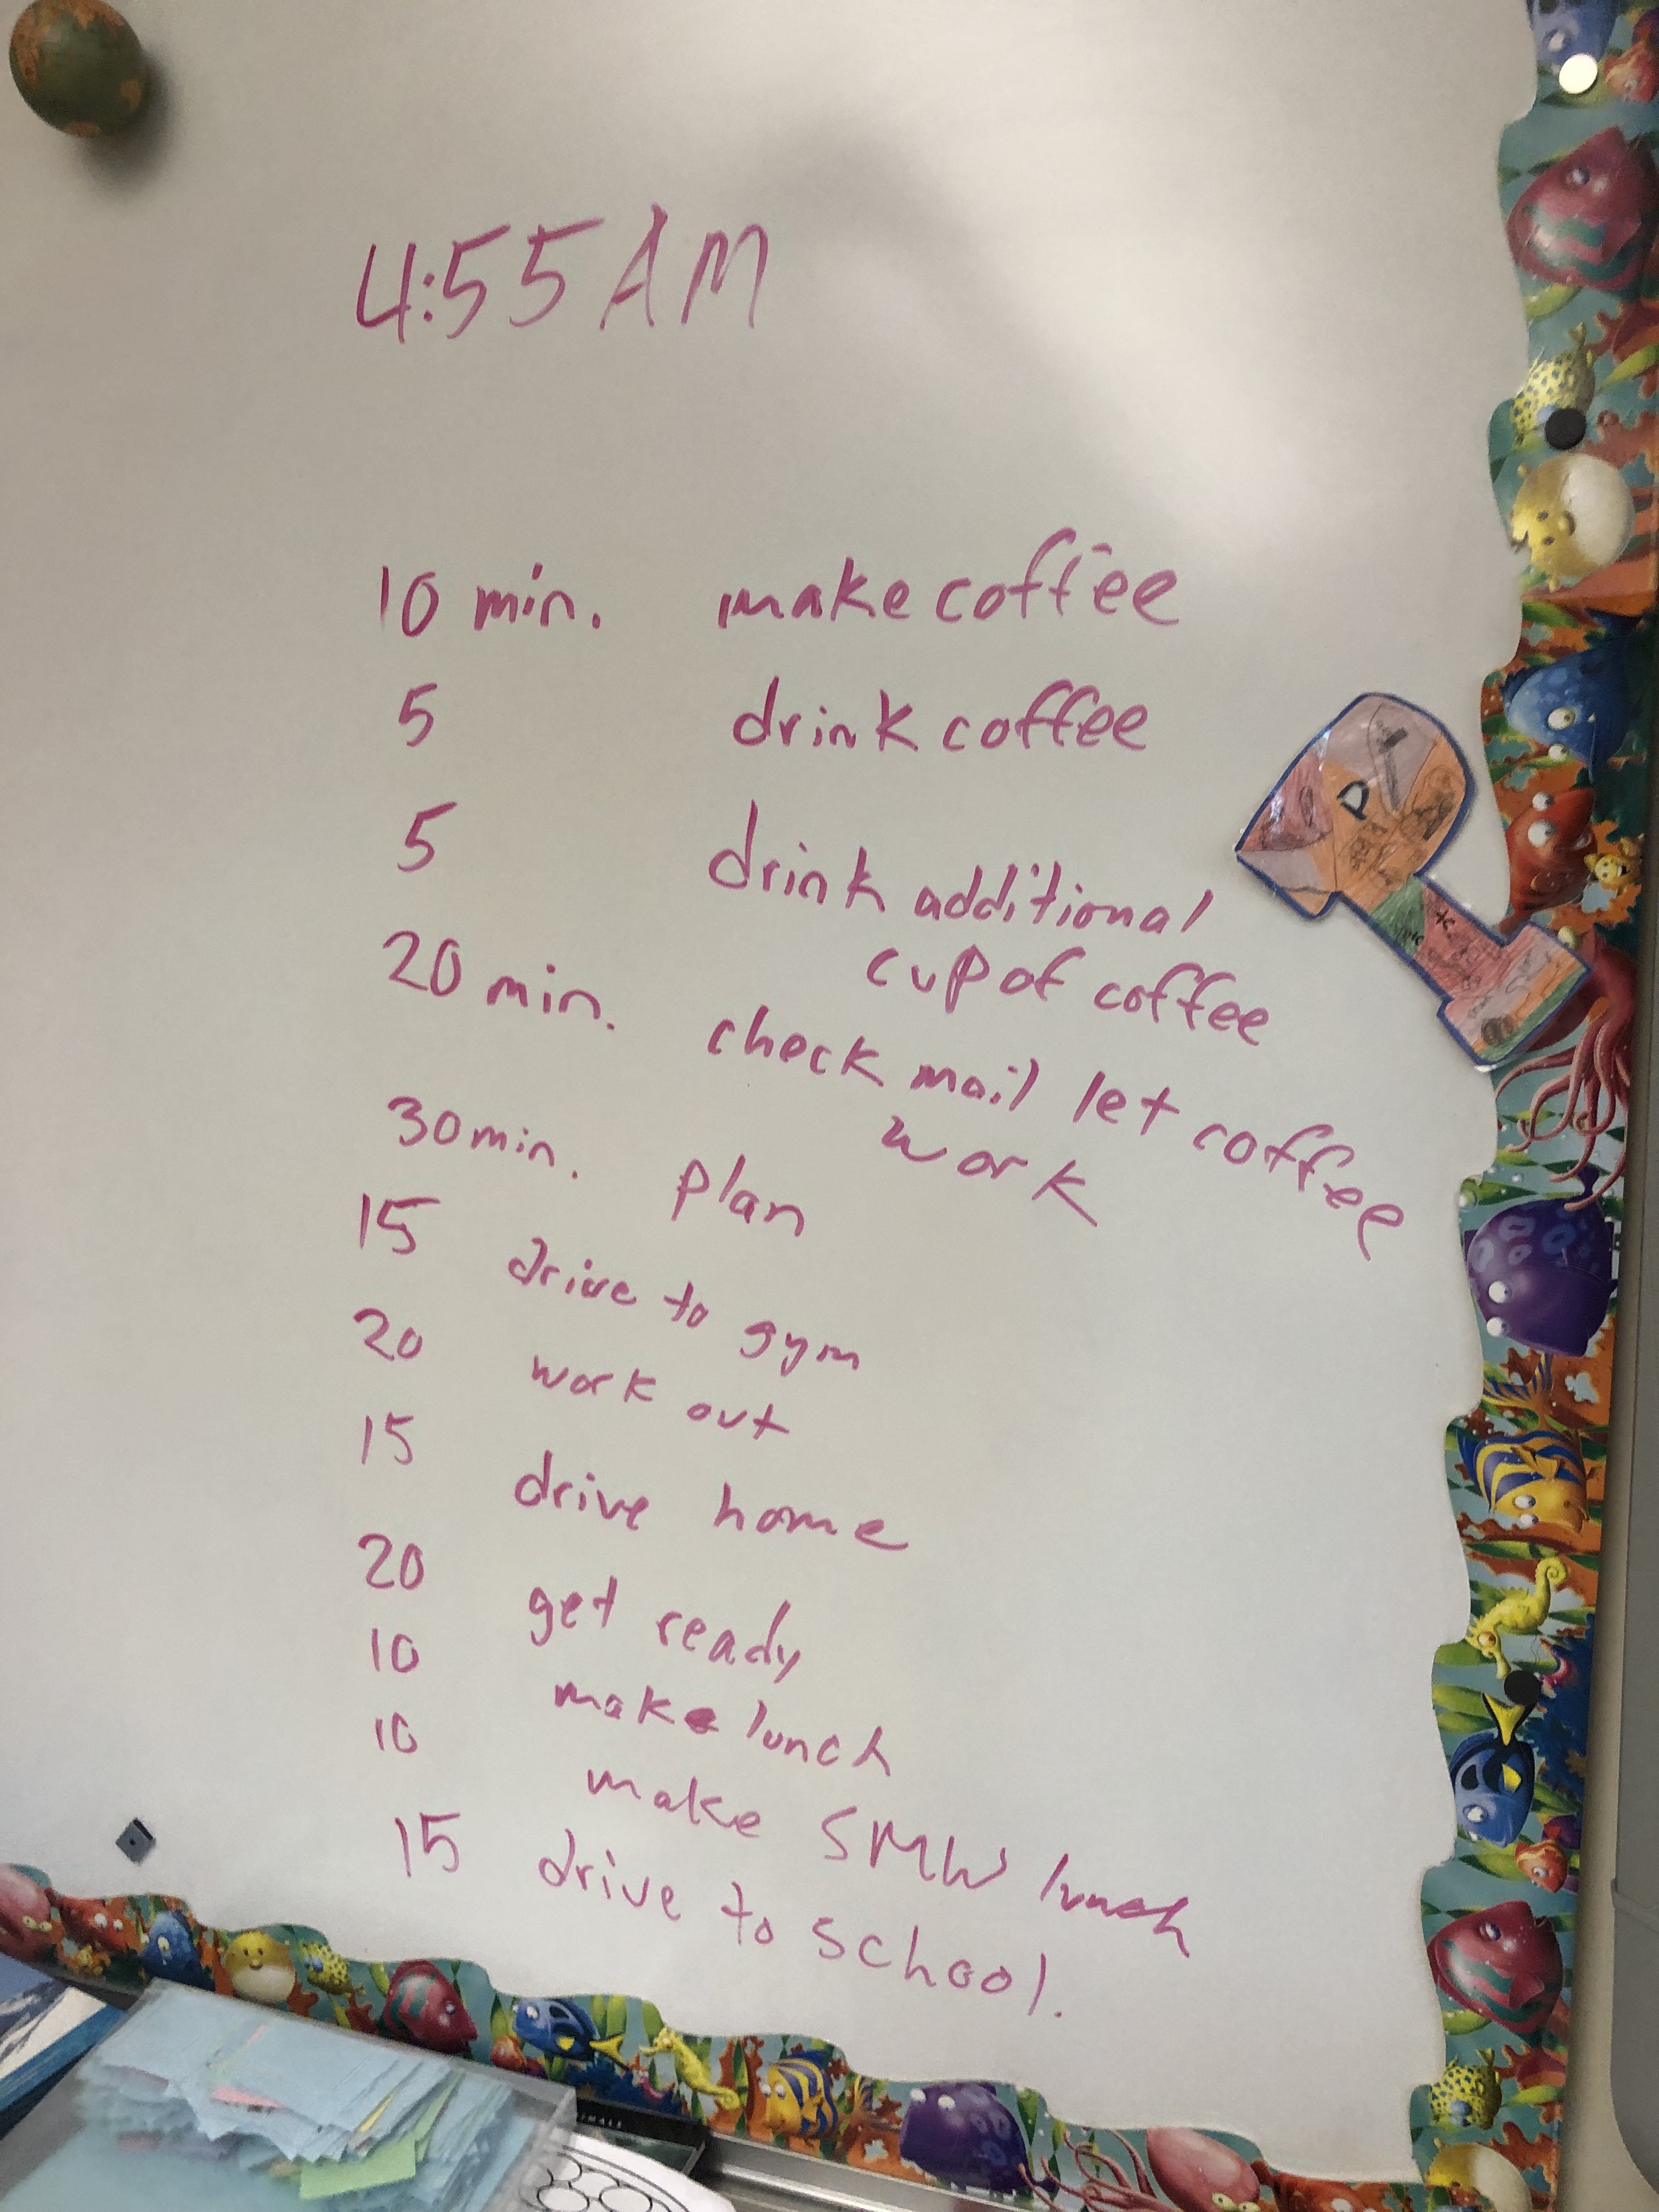 4:55 AM
10 min. make coffee
5 drink coffee
5 drink additional
cup of coffee
20 min. check mail let coffee
work
30 min. plan
15 drive to gym
20 work out
15 drive home
20 get ready
10 make lunch
10 make SMW lunch
15 drive to school.